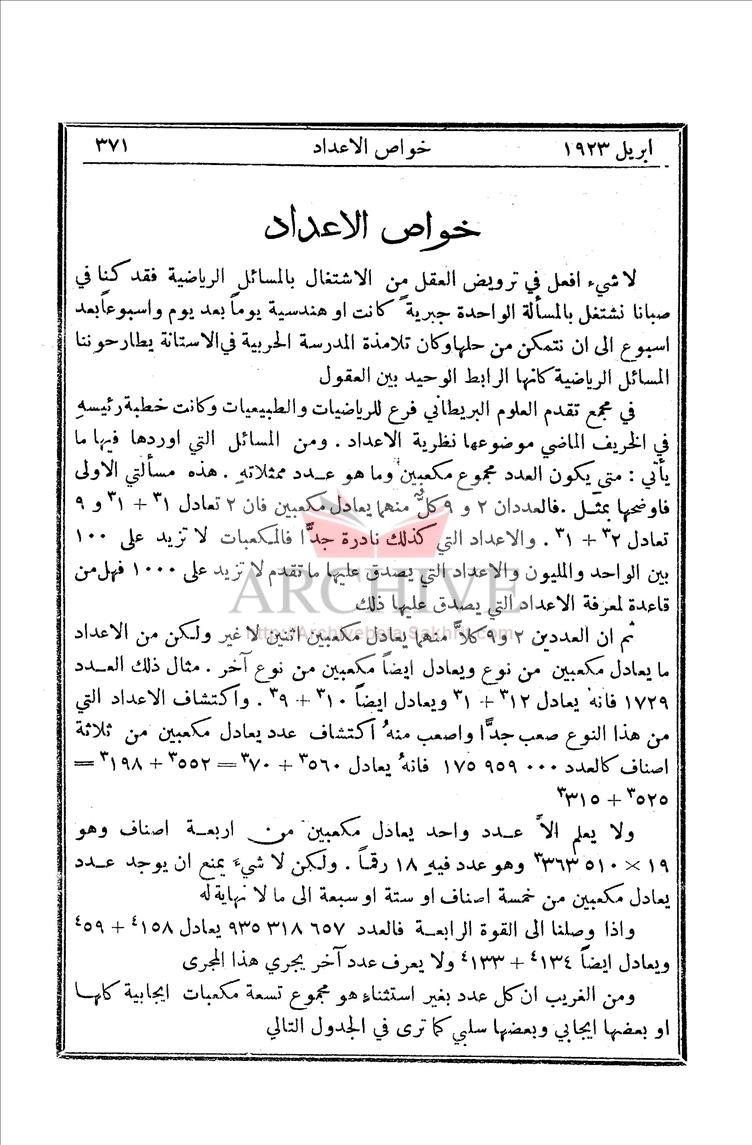 ابريل ١٩٢٣ خواص الاعداد ٣٧١
خواص الاعداد
لا شيء افعل في ترويض العقل من الاشتغال بالمسائل الرياضية فقد كنا في
صبانا نشتغل بالمسألة الواحدة جبرية كانت او هندسية يوماً بعد يوم واسبوعاً بعد
اسبوع الى ان نتمكن من حلها وكان تلامذة المدرسة الحربية في الاستانة يطارحوننا
المسائل الرياضية كانها الرابط الوحيد بين العقول
في مجمع تقدم العلوم البريطاني فرع للرياضيات والطبيعيات وكانت خطبة رئيسهِ
في الخريف الماضي موضوعها نظرية الاعداد . ومن المسائل التي اوردها فيها ما
يأتي : متى يكون العدد مجموع مكعبين وما هو عدد ممثلاتهِ . هذه مسألتي الاولى
فاوضحها بمثل . فالعددان ٢ و ٩ كلٌّ منهما يعادل مكعبين فان ٢ تعادل ١³ + ١³ و ٩
تعادل ٢³ + ١³ . والاعداد التي كذلك نادرة جدًّا فالمكعبات لا تزيد على ١٠٠
بين الواحد والمليون والاعداد التي يصدق عليها ما تقدم لا تزيد على ١٠٠٠ فهل من
قاعدة لمعرفة الاعداد التي يصدق عليها ذلك
ثم ان العددين ٢ و٩ كلاًّ منهما يعادل مكعبين اثنين لا غير ولكن من الاعداد
ما يعادل مكعبين من نوع ويعادل ايضاً مكعبين من نوع آخر . مثال ذلك العدد
١٧٢٩ فانهُ يعادل ١٢³ + ١³ ويعادل ايضاً ١٠³ + ٩³ . واكتشاف الاعداد التي
من هذا النوع صعب جدًّا واصعب منهُ اكتشاف عدد يعادل مكعبين من ثلاثة
اصناف كالعدد ١٧٥ ٩٥٩ ٠٠٠ فانهُ يعادل ٥٦٠³ + ٧٠³ = ٥٥٢³ + ١٩٨³ =
٥٢٥³ + ٣١٥³
ولا يعلم الاَّ عدد واحد يعادل مكعبين من اربعة اصناف وهو
١٩ × ٥١٠ ٣٦٣³ وهو عدد فيهِ ١٨ رقماً . ولكن لا شيءَ يمنع ان يوجد عدد
يعادل مكعبين من خمسة اصناف او ستة او سبعة الى ما لا نهاية له
واذا وصلنا الى القوة الرابعة فالعدد ٦٥٧ ٣١٨ ٩٣٥ يعادل ١٥٨⁴ + ٥٩⁴
ويعادل ايضاً ١٣٤⁴ + ١٣٣⁴ ولا يعرف عدد آخر يجري هذا المجرى
ومن الغريب ان كل عدد بغير استثناءٍ هو مجموع تسعة مكعبات ايجابية كلها
او بعضها ايجابي وبعضها سلبي كما ترى في الجدول التالي
ARCHIVE
http://Archivebeta.Sakhrit.com